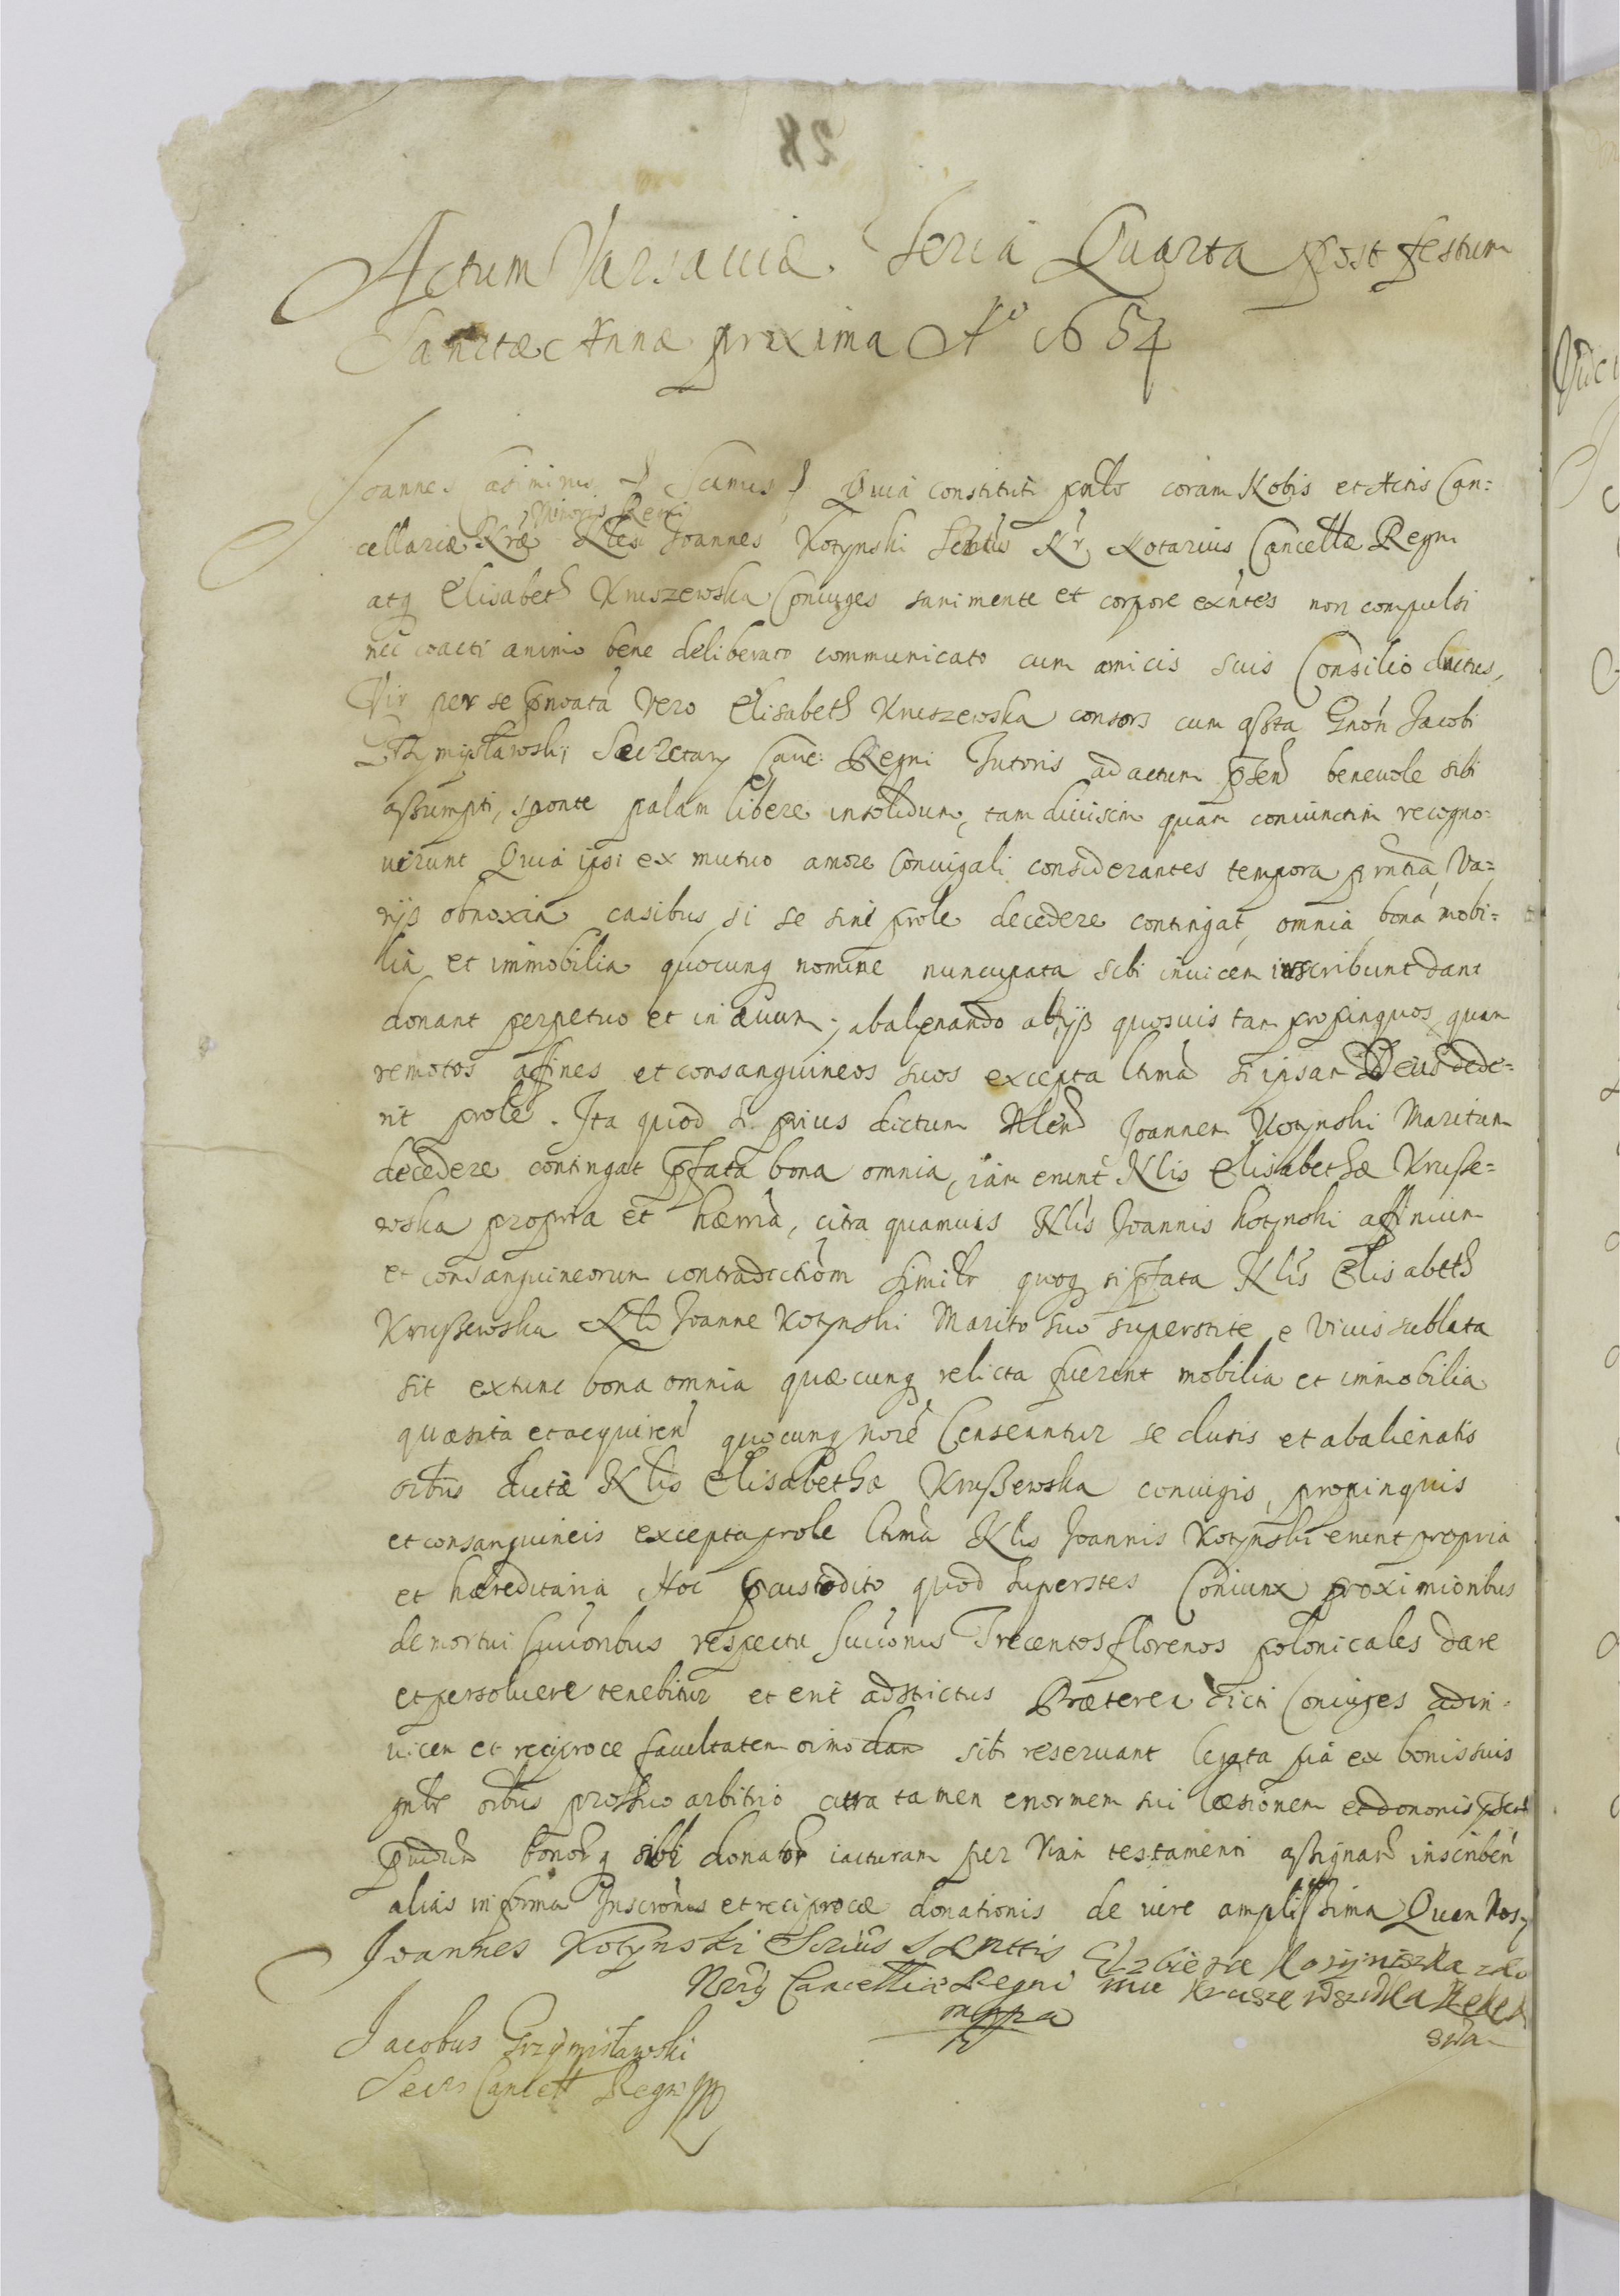 28
Actum Varsaviæ. Feria Quarta post festum
Sanctæ Annæ proxima Aº 1654
Joannes Casimirus Quia constituti pnlr coram Nobis et Actis Can=
Minoris Regni
cellariæ Nræ Nles Joannes Kotynski Notarius Cancellæ Regni
atq Elisabeth Kruszewska Coniuges sani mente et corpore exntes non compulsi
nec coacti animo bene deliberato communicato cum amicis suis Consilio
Vir per se vero Elisabeth Kruszewska consors cum asta Gnon Jacobi
Grzymisławski Secretarÿ Canc: Regni Tutoris ad actum pntem benevole sibi
assumpti, sponte palam libere insolidum, tam divisim quam coniunctim recogno=
verunt Quia ipsi ex mutuo amore Coniugali considerantes tempora Va=
rijs obnoxia casibus si se sine prole decedere contingat, omnia bona mobi=
lia et immobilia quocunq nomine nuncupata sibi invicem inscribunt dant
donant perpetuo et in ævum; abalienando ab ijs quosvis tam propinquos quam
remotos affines et consanguineos suos excepta ltima si ipsam Deus dede=
rit prole. Ita quod si prius dictum Nlem Joannem Kotynski Maritum
decedere contingat pfata bona omnia, iam erunt Nlis Elisabethæ Krusse=
wska propria et hærria, citra quamvis Nlis Joannis Kotynski affinium
et consanguineorum contradictiom similr quoq si pfata Nlis Elisabeth
Krussewska Nli Joanne Kotynski Marito suo superstite e vivis sublata
sit extunc bona omnia quæcunq relicta fuerint mobilia et immobilia
quæsita et acquiren quocunq noie Censeantur seclusis et abalienatis
oibus dictæ Nlis Elisabethæ Krussewska coniugis, propinquis
et consanguineis excepta prole ltima Nlis Joannis Kotynski erunt propria
et hæreditaria Hoc pcustodito quod superstes Coniunx proximioribus
demortui succoribus respectu succonis Trecentos florenos polonicales dare
et persolvere tenebitur et erit adstrictus Præterea dicti Coniuges adin=
vicem et reciproce facultatem oimodam sibi reservant legata pia ex bonis suis
gnlr oibus pro suo arbitrio citra tamen enormem sui læsionem
bonorq sibi donator iacturam per viam testamenti assignare inscriben
alias in forma Inscronis et reciprocæ donationis de iure amplissima Quam Nos
Joannes Kotynski
Cancellia Regni mppa
Elzbieta Kotynska
Kruszewska
Jacobus Grzymisławski
Secrs Cancell Regni mp